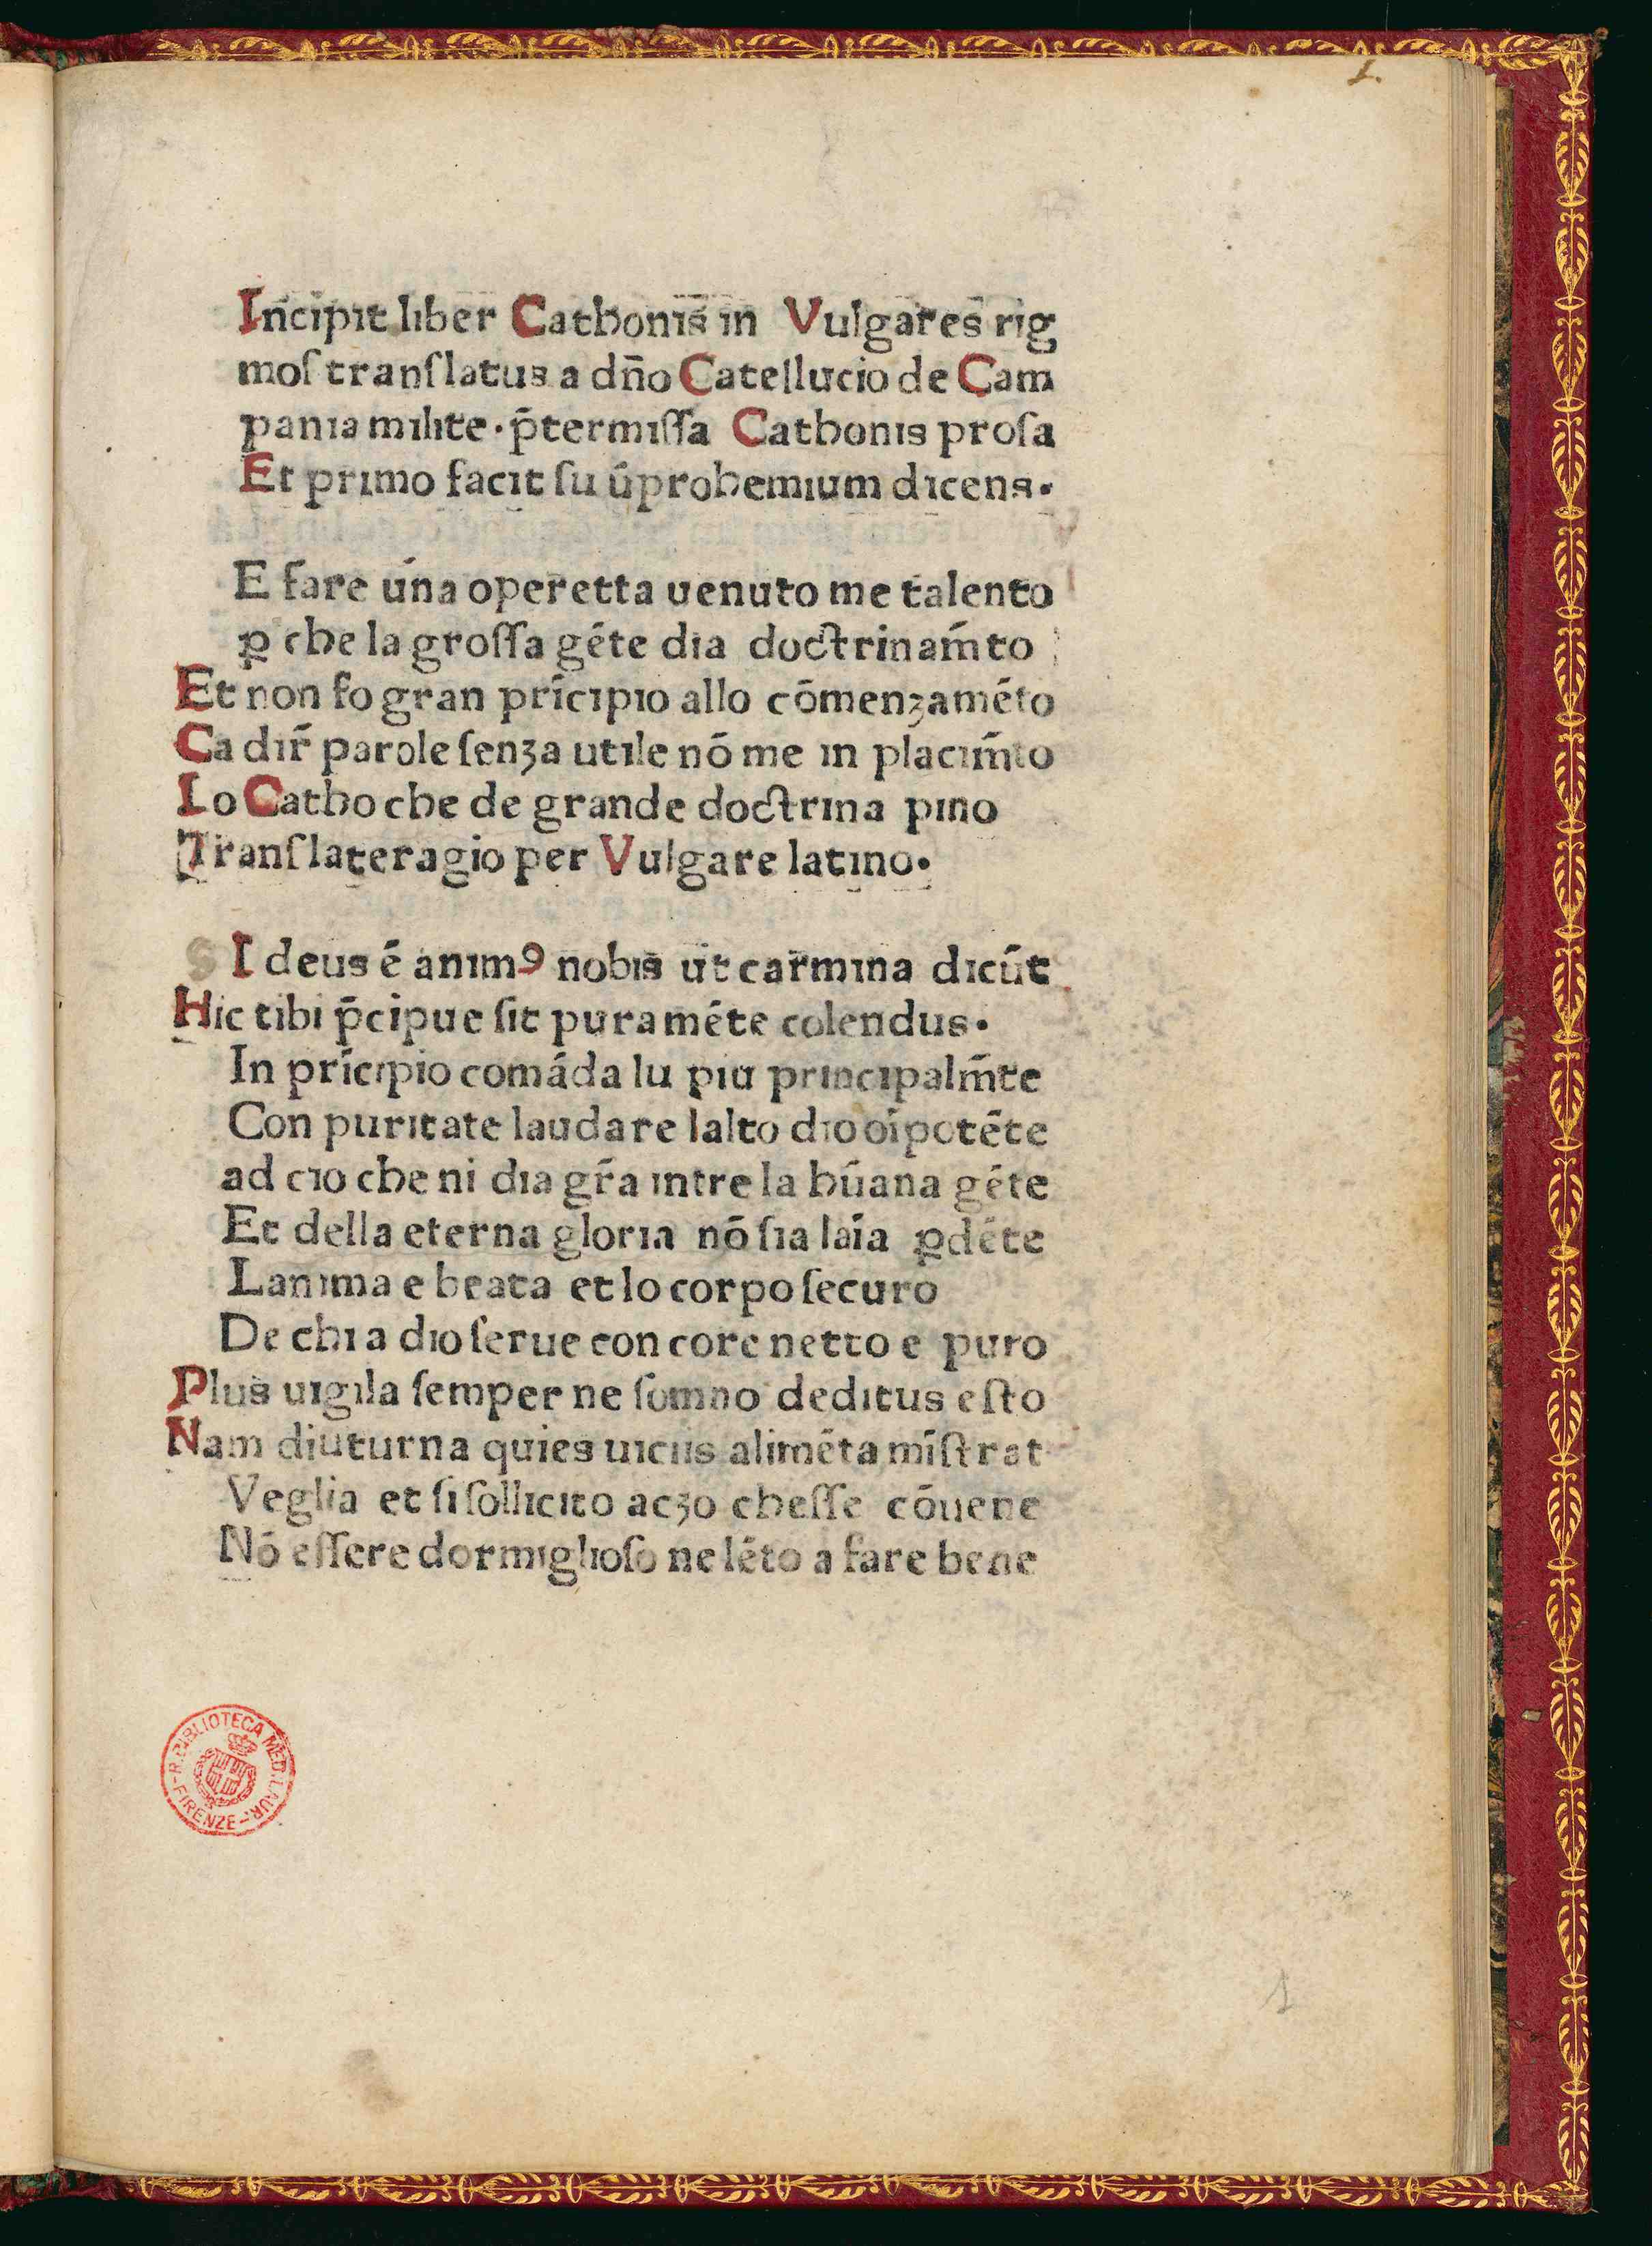 1.
Incipit liber Cathonis in Vulgares rig
moſ tranſlatus a dño Catellucio de Cam
pania milite · p̄termiſſa Cathonis proſa
Et primo facit ſu ūprohemium dicens·
E fare una operetta uenuto me talento
ꝑ che la groſſa gēte dia doctrinam̄to
Et non fo gran prīcipio allo cōmenʒamēto
Ca dir̄ parole ſenʒa utile nō me in placim̄to
Lo Catho che de grande doctrina pino
Tranſlateragio per Vulgare latino·
SI deus ē animꝯ nobis ut carmina dicūt
Hic tibi p̄cipue ſit pura mēte colendus·
In prīcipio comāda lu piu principalm̄te
Con puritate laudare lalto dio oīpotēte
ad cio che ni dia gr̄a intre la hūana gēte
Et della eterna gloria nō ſia laīa ꝑdēte
Lanima e beata et lo corpo ſecuro
De chi a dio ſerue con core netto e puro
Plus uigila ſemper ne ſomno deditus eſto
Nam diuturna quies uiciis alimēta mīſtrat
Veglia et ſi ſollicito acʒo cheſſe cōuene
Nō eſſere dormiglioſo ne lēto a fare bene
R. BIBLIOTECA MED. LAUR. - FIRENZE -
1